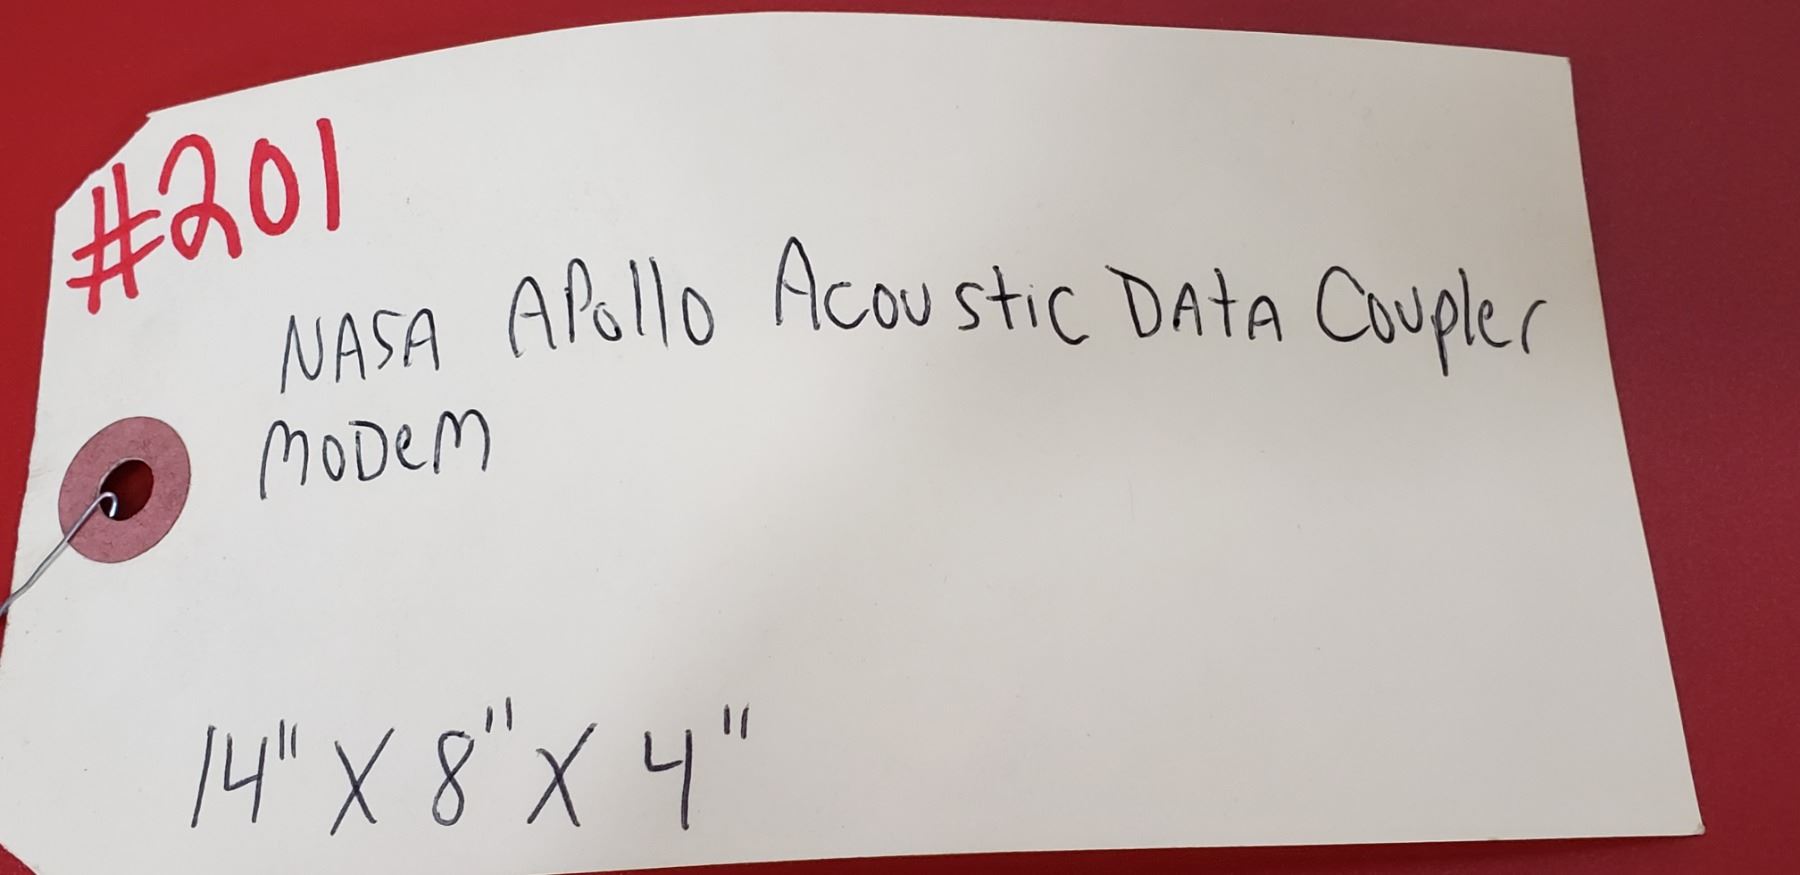 #201
NASA APollo Acoustic DAtA Coupler
MoDeM
14" X 8" X 4"